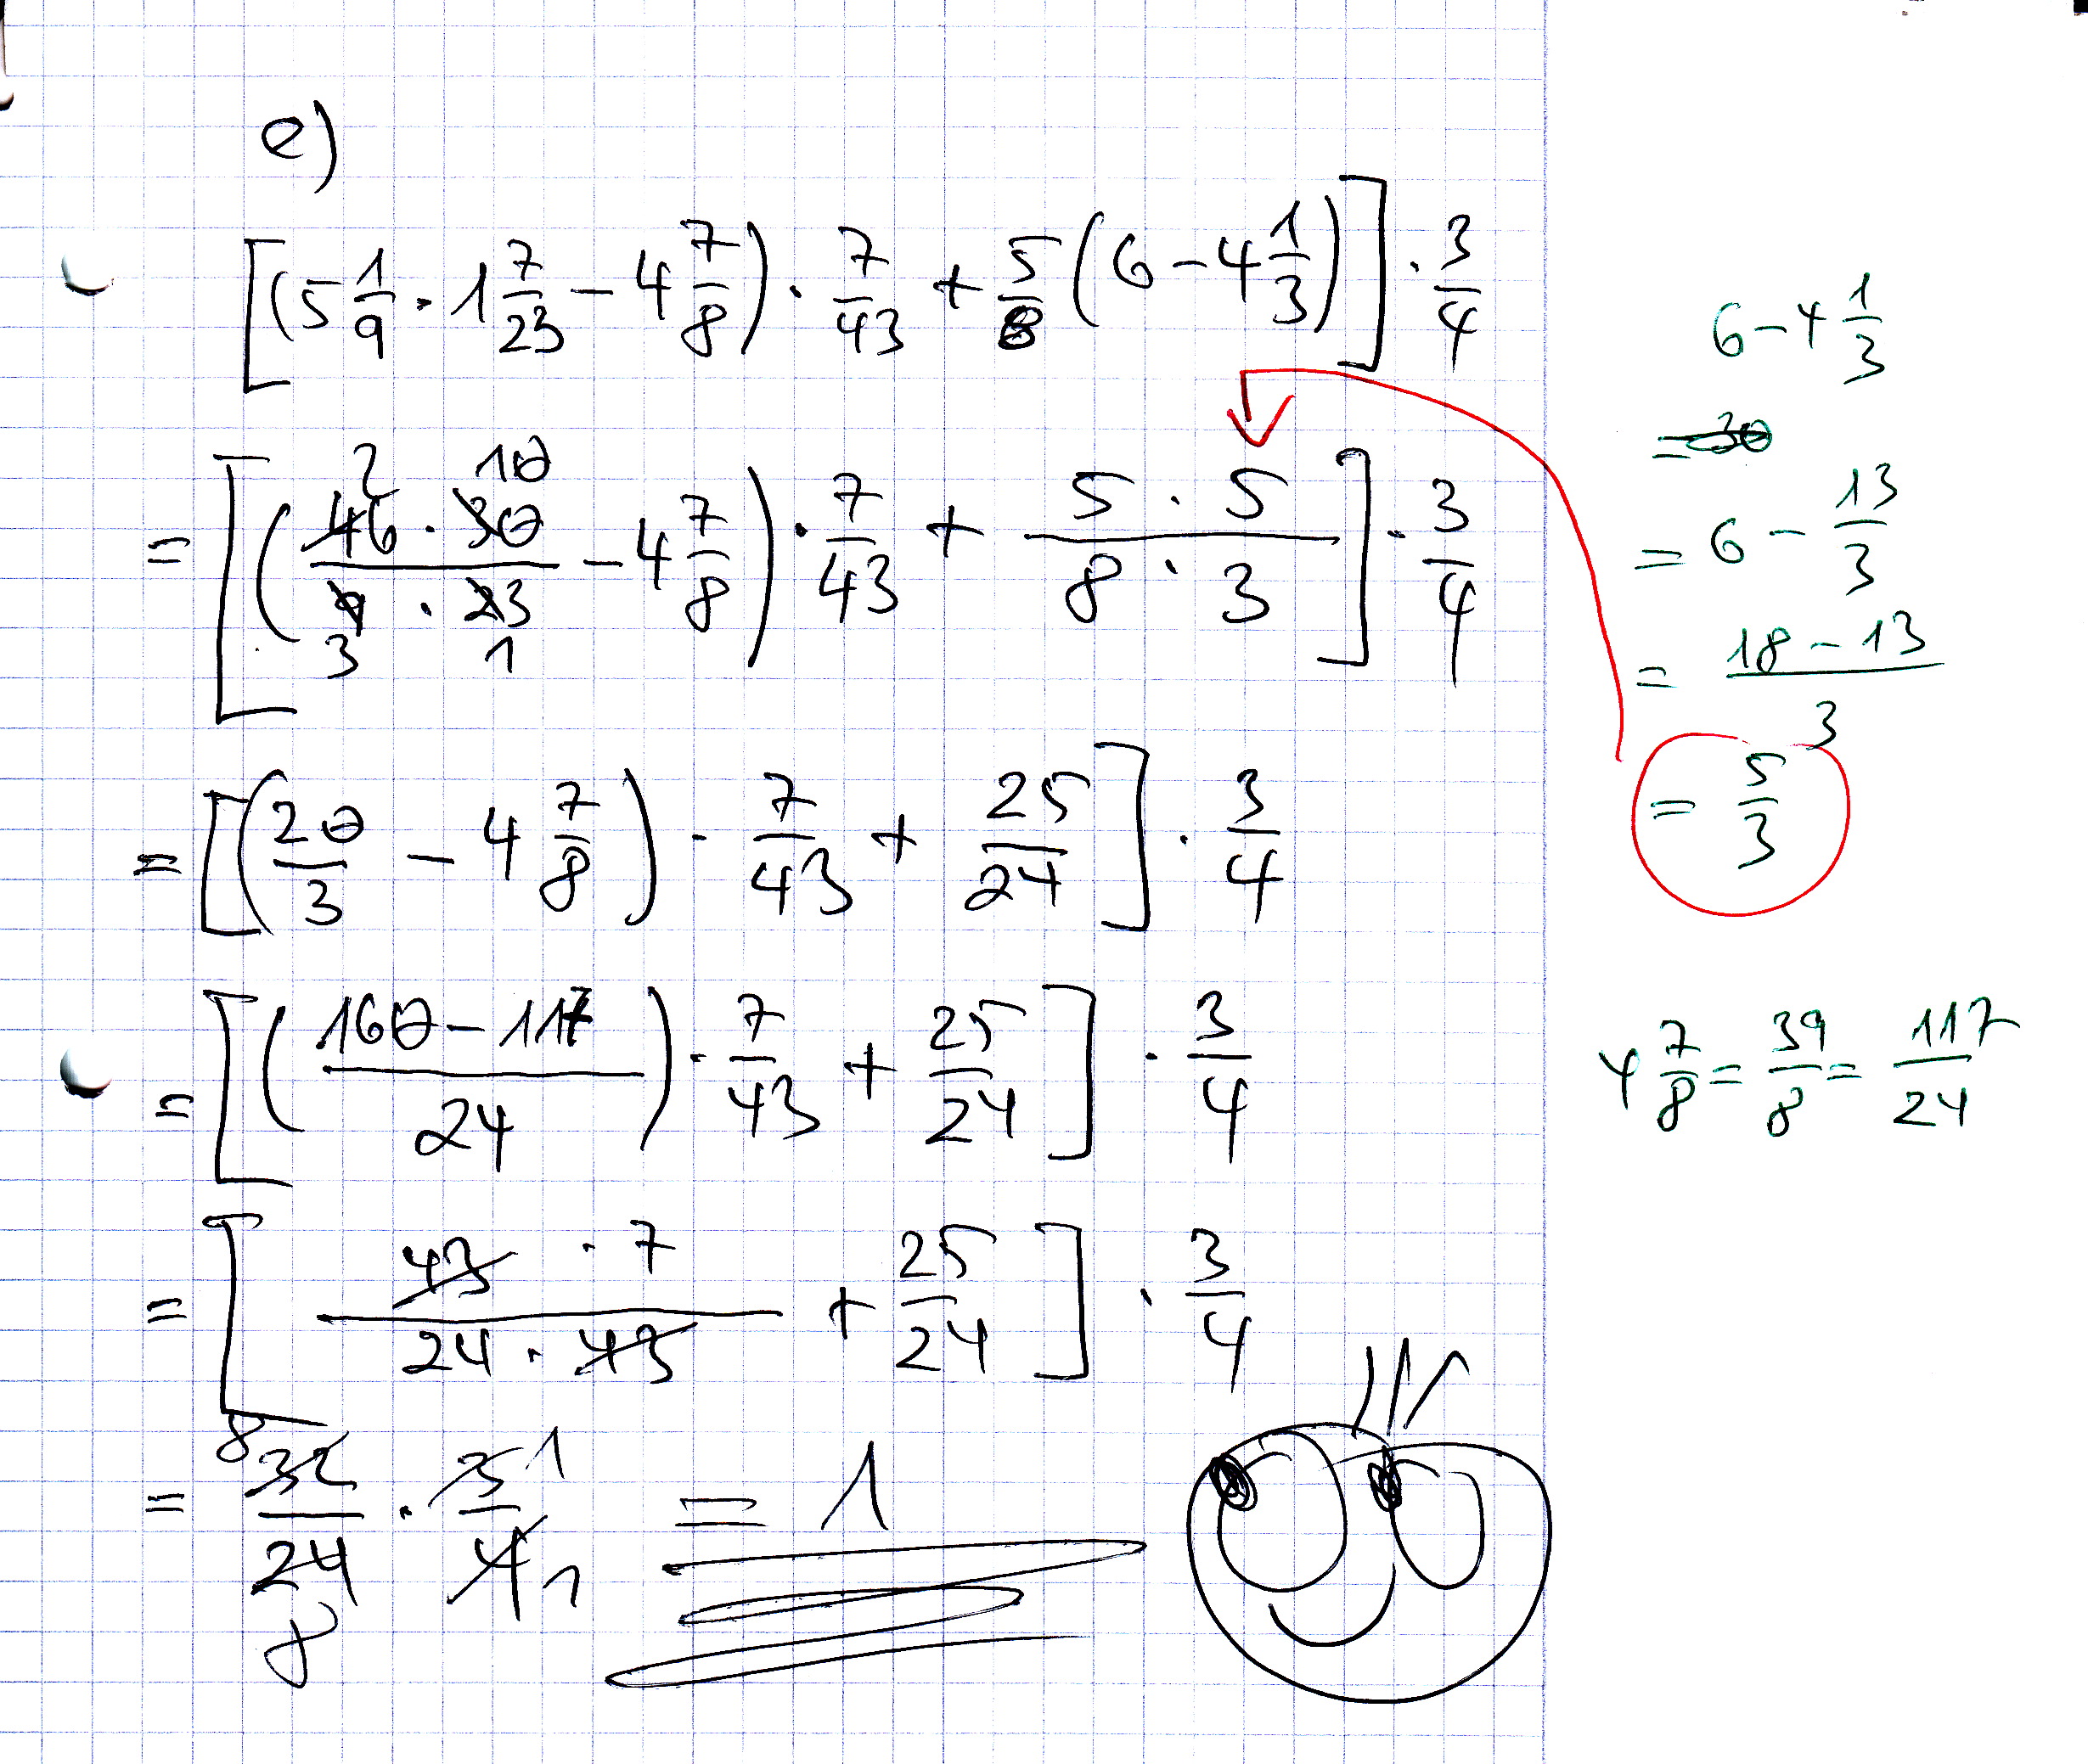 e)
[(5 1/9 · 1 7/23 - 4 7/8) · 7/43 + 5/8 (6 - 4 1/3)] · 3/4
2 10
= [(46 · 30 / 9 · 23 - 4 7/8) · 7/43 + 5 · 5 / 8 · 3] · 3/4
3 1
= [(20/3 - 4 7/8) · 7/43 + 25/24] · 3/4
= [(160 - 117 / 24) · 7/43 + 25/24] · 3/4
= [43 · 7 / 24 · 43 + 25/24] · 3/4
= 8 32/24 8 · 3/4 1 1 = 1
6 - 4 1/3
= 30
= 6 - 13/3
= 18 - 13 / 3
= 5/3
4 7/8 = 39/8 = 117/24